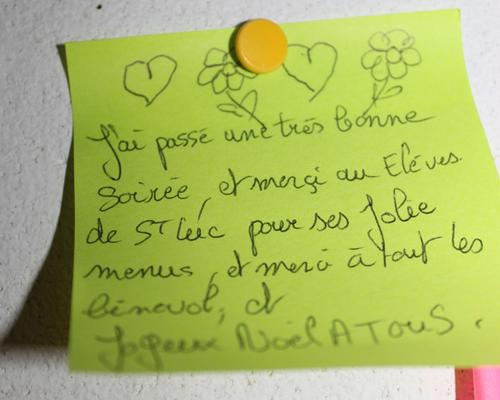 J'ai passé une très bonne
soirée, et merçi au Elèves
de ST Luc pour ses Jolie
menus, et merci à tout les
bénévol, et
Joyeux Noël A TOUS.